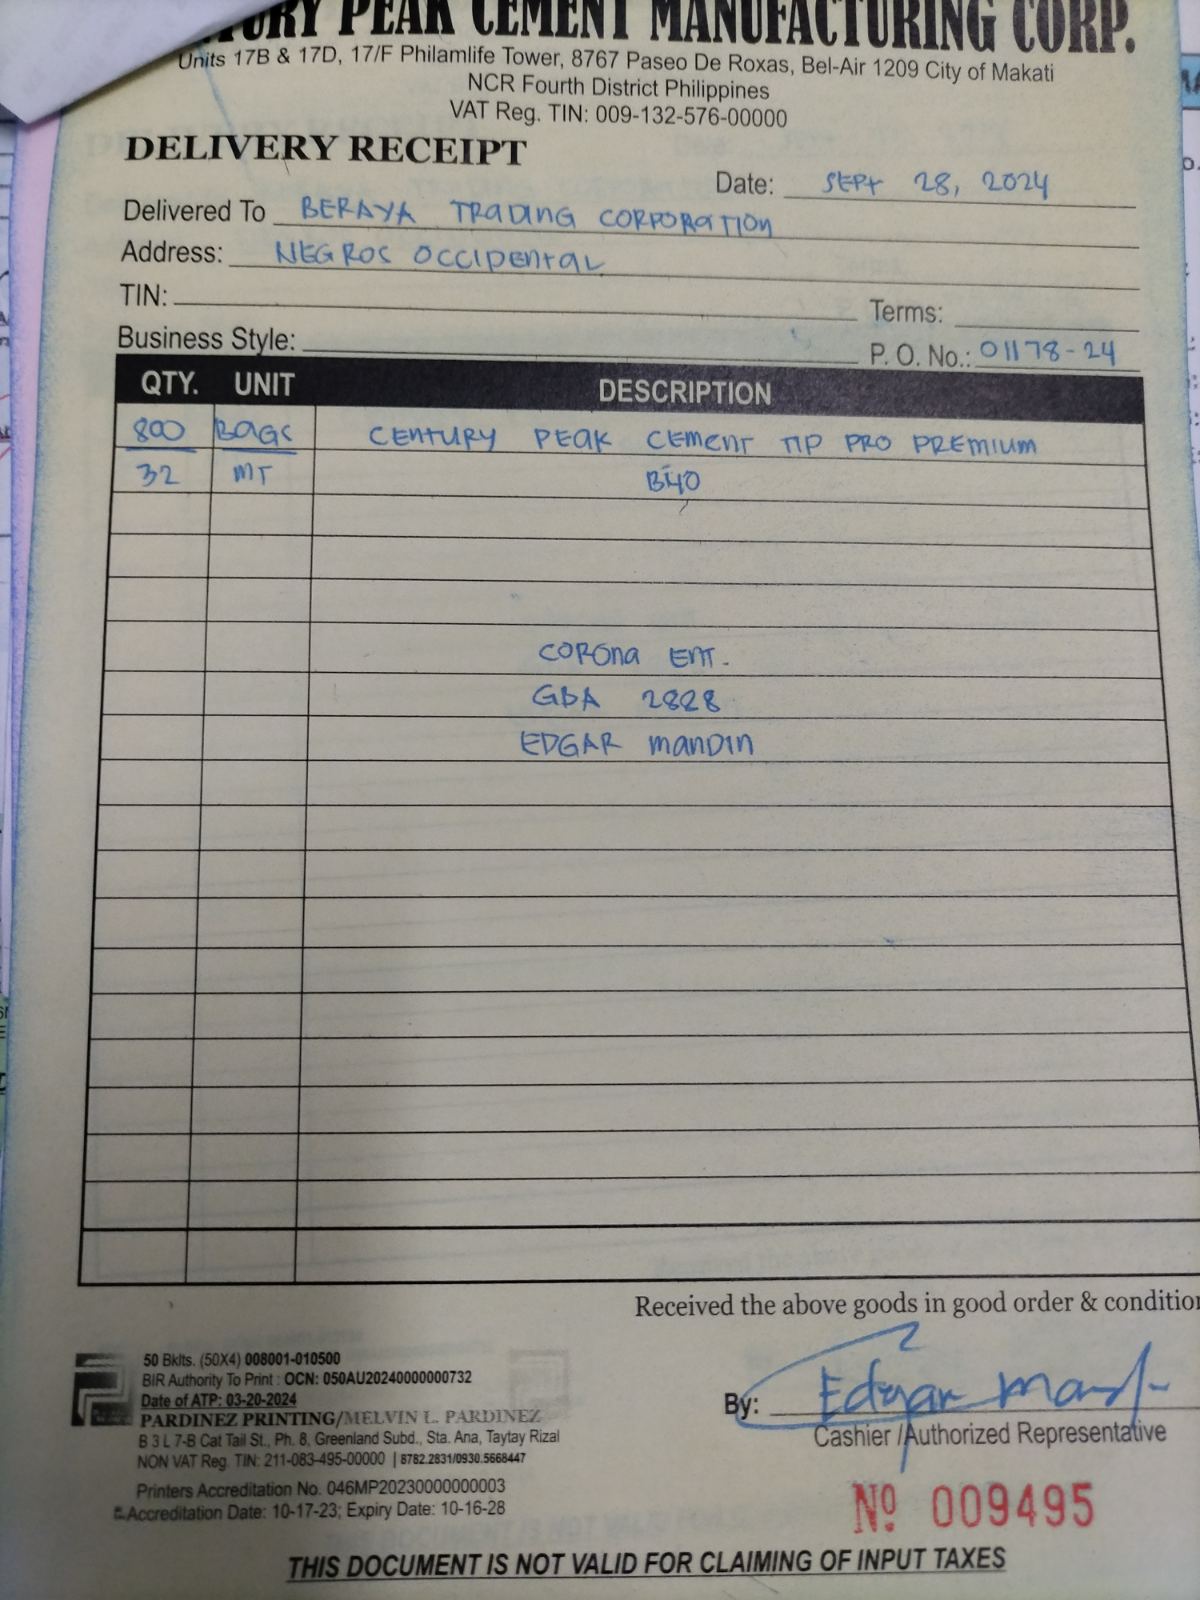 PEAK CEMENT MANUFACTURING CORP.
Units 17B & 17D, 17/F Philamlife Tower, 8767 Paseo De Roxas, Bel-Air 1209 City of Makati
NCR Fourth District Philippines
VAT Reg. TIN: 009-132-576-00000
DELIVERY RECEIPT
Date: SEPT 28, 2024
Delivered To BERAYA TRADING CORPORATION
Address: NEGROS OCCIDENTAL
TIN:
Terms:
Business Style:
P. O. No.: 01178-24
QTY. UNIT DESCRIPTION
800 BAGS CENTURY PEAK CEMENT TIP PRO PREMIUM
32 MT B40
CORONA ENT.
GBA 2828
EDGAR MANDIN
Received the above goods in good order &
50 Bklts. (50X4) 008001-010500
BIR Authority To Print : OCN: 050AU20240000000732
Date of ATP: 03-20-2024
PARDINEZ PRINTING/MELVIN L. PARDINEZ
B 3 L 7-B Cat Tail St., Ph. 8, Greenland Subd., Sta. Ana, Taytay Rizal
NON VAT Reg. TIN: 211-083-495-00000 | 8782.2831/0930.5668447
Printers Accreditation No. 046MP20230000000003
Accreditation Date: 10-17-23; Expiry Date: 10-16-28
By: Edgar
Cashier /Authorized Representative
Nº 009495
THIS DOCUMENT IS NOT VALID FOR CLAIMING OF INPUT TAXES